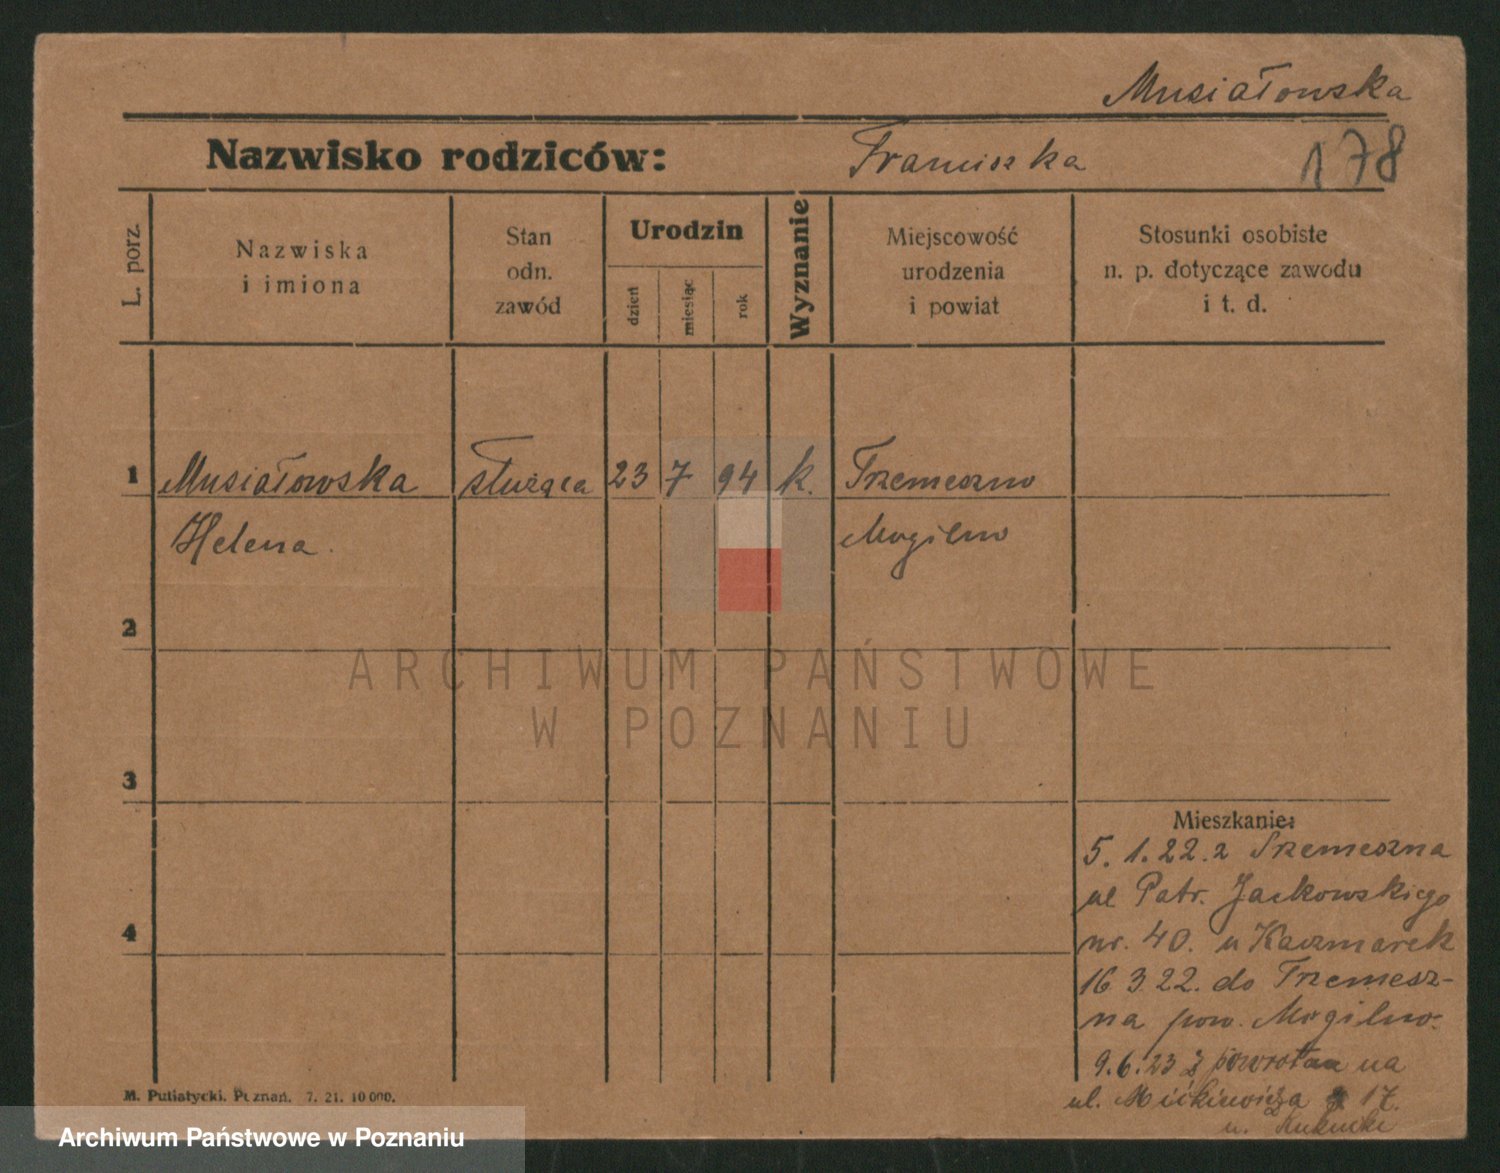 Musiałowska
Nazwisko rodziców: Franciszka 178
L. porz.
Nazwiska
i imiona
Stan
odn.
zawód
Urodzin
dzień
miesiąc
rok
Wyznanie
Miejscowość
urodzenia
i powiat
Stosunki osobiste
n. p. dotyczące zawodu
i t. d.
1 Musiałowska służąca 23 7 94 k. Trzemeszno
Helena. Mogilno
2
ARCHIWUM PAŃSTWOWE
W POZNANIU
3
Mieszkanie:
5. 1. 22. z Trzemeszna
ul Patr. Jackowskiego
4
nr. 40. u Kaczmarek
16 3 22. do Trzemesz-
na pow. Mogilno.
9. 6. 23 z powrotem na
ul. Mickiewicza 17.
u.
M. Putiatycki. Poznań. 7. 21. 10 000.
Archiwum Państwowe w Poznaniu